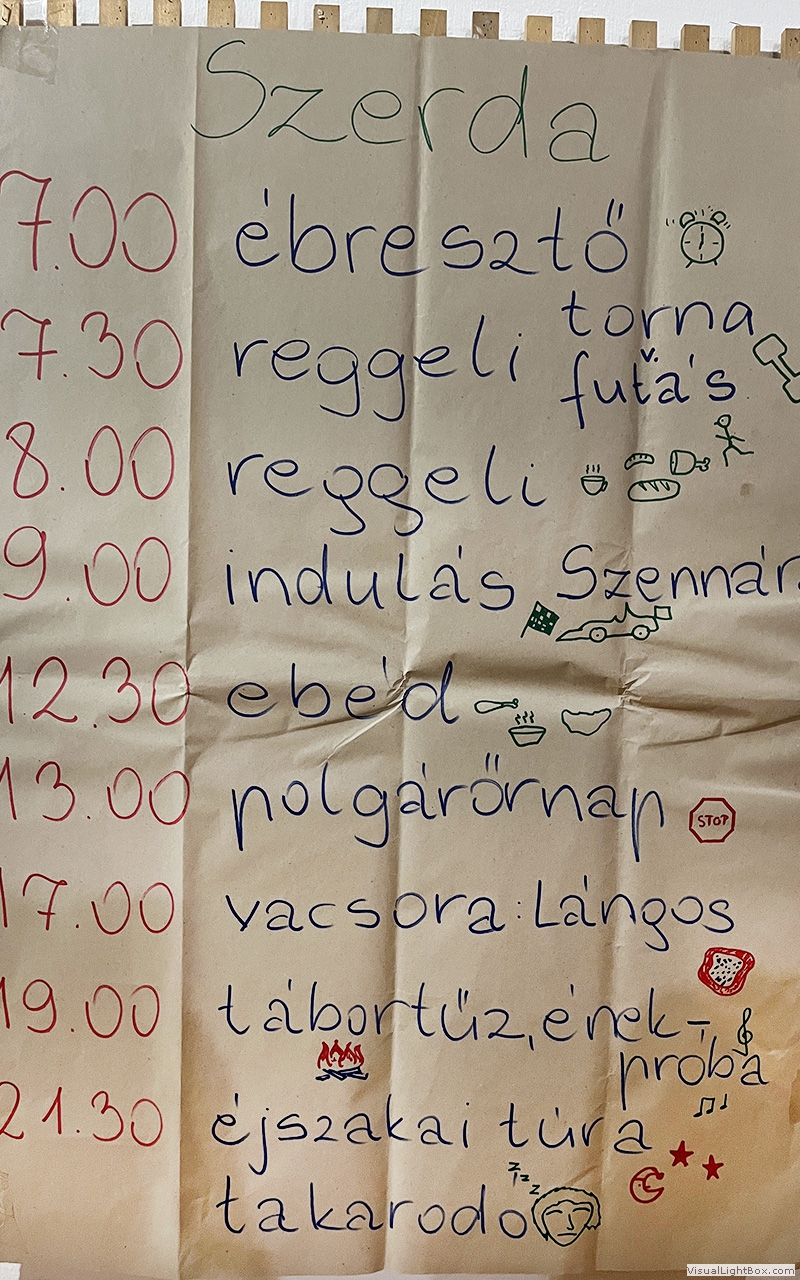 Szerda
7.00 ébresztő
7.30 reggeli torna
futás
8.00 reggeli
9.00 indulás Szennára
12.30 ebéd
13.00 polgárőrnap
STOP
17.00 vacsora: Lángos
19.00 tábortűz, ének-
próba
21.30 éjszakai túra
zzz
takarodo
VisualLightBox.com